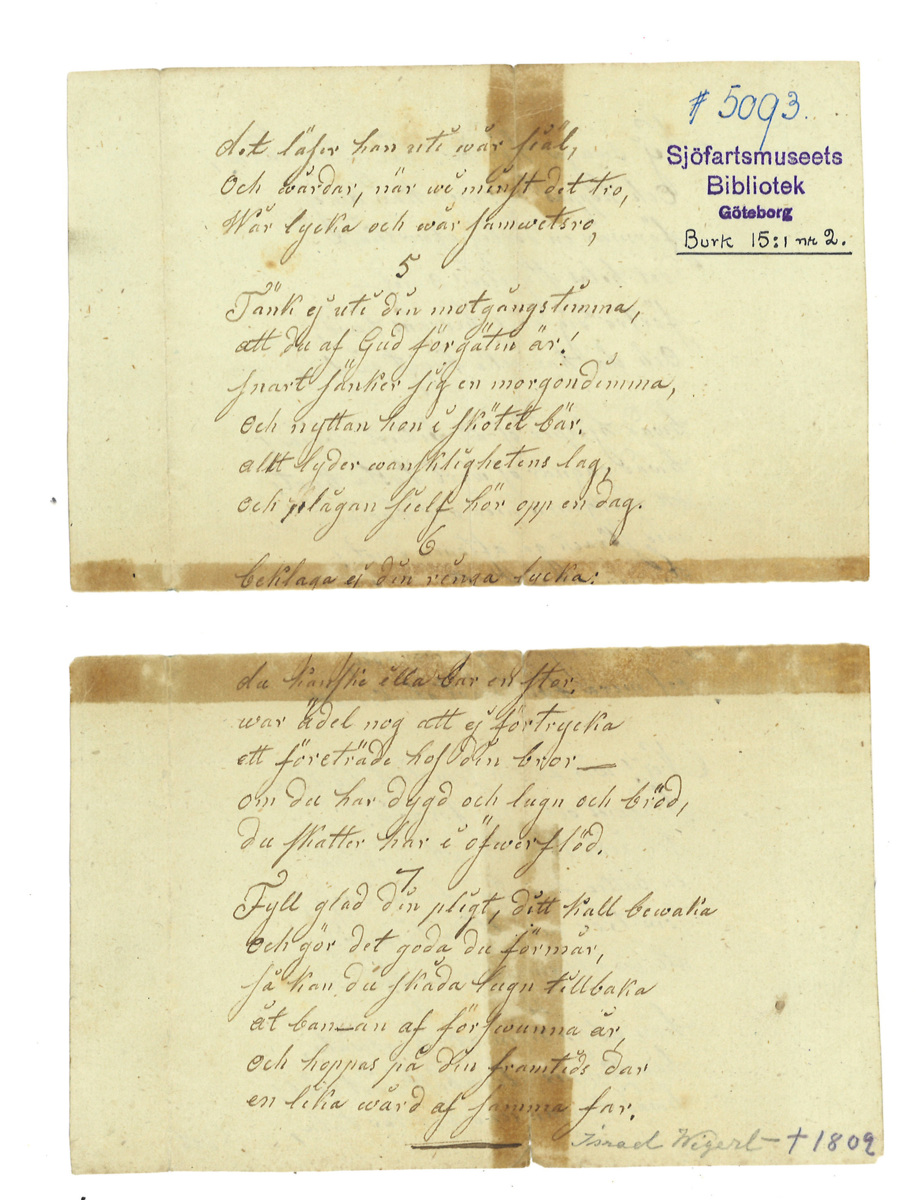 det läser han uti wår siäl,
Och wårdar, när wi minst det tro,
Wår lycka och wår samwetsro,
5
Tänk ej uti din motgångstimma,
att du af Gud förgäten är!
snart sänker sig en morgondimma,
och nyttan hon i skötet bär.
allt lyder wansklighetens lag,
och plågan sielf hör opp en dag.
6
beklaga ej din ringa lycka:
du kanske illa bar en stor.
war ädel nog att ej förtrycka
ett företräde hos din bror—
om du har dygd och lugn och bröd,
du skatter har i öfwerflöd.
7
Fyll glad din pligt, ditt kall bewaka
och gör det goda du förmår,
så kan du skåda lugn tillbaka
åt ban—an af förswunna år,
och hoppas på din framtids dar
en lika wård af samma far.
# 5093.
Sjöfartsmuseets
Bibliotek
Göteborg
Burk 15:1 nr 2.
Israel Wigert — † 1809